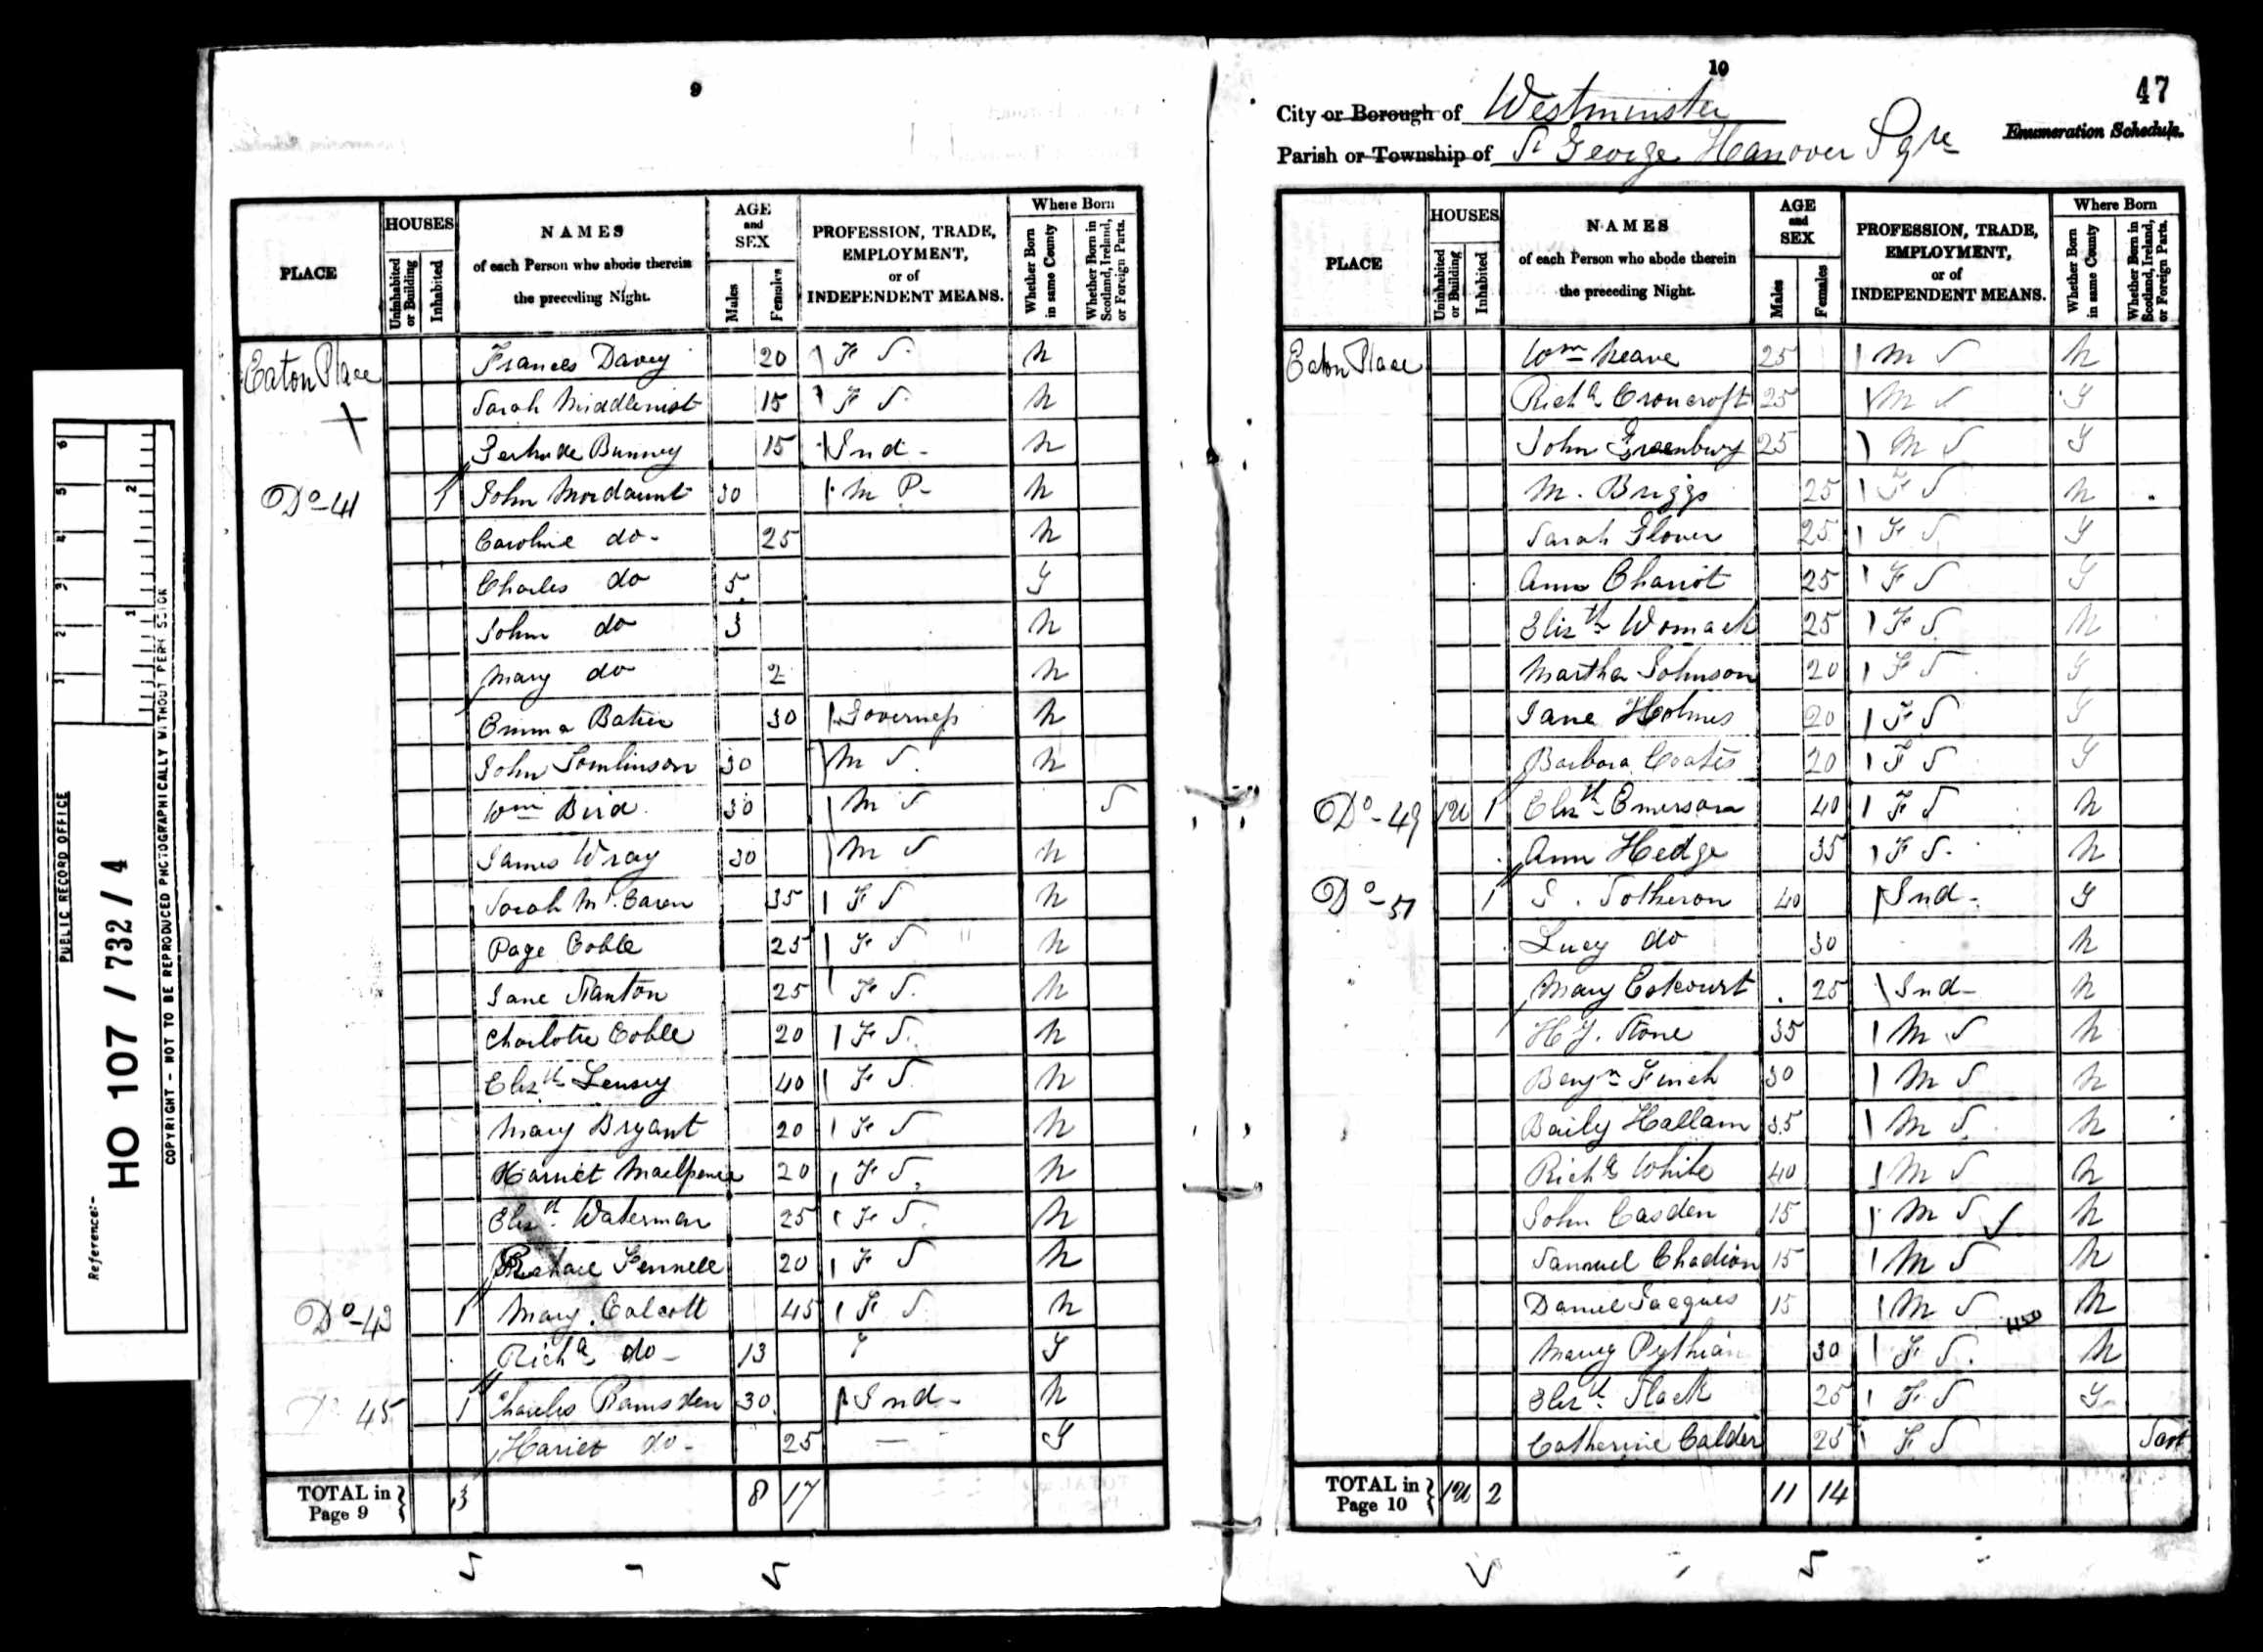 6 5 4 3 2 1
2 1
PUBLIC RECORD OFFICE
Reference:-
HO 107 / 732 / 4
COPYRIGHT - NOT TO BE REPRODUCED PHOTOGRAPHICALLY WITHOUT PERMISSION
9
PLACE
HOUSES
Uninhabited or Building
Inhabited
NAMES
of each Person who abode therein
the preceding Night.
AGE
and
SEX
Males
Females
PROFESSION, TRADE,
EMPLOYMENT,
or of
INDEPENDENT MEANS.
Where Born
Whether Born in same County
Whether Born in Scotland, Ireland, or Foreign Parts.
Eaton Place Frances Davey 20 F S N
Sarah Middlemist 15 F S N
Gertrude Bunney 15 Ind - N
Do - 41 1 John Mordaunt 30 M P - N
Caroline do - 25 N
Charles do 5 Y
John do 3 N
Mary do 2 N
Emma Bater 30 Governess N
John Tomlinson 30 M S N
Wm Bird 30 M S S
James Wray 30 M S N
Sarah 35 F S N
Page Coble 25 F S N
Jane Stanton 25 F S N
Charlotte Coble 20 F S N
Elizth 40 F S N
Mary Bryant 20 F S N
Harriet 20 F S N
Elizth Waterman 25 F S N
Fennell 20 F S N
Do - 43 1 Mary Calcott 45 F S N
Richd do - 13 Y
Do 45 1 Charles Ramsden 30 Ind - N
Hariet do - 25 — Y
TOTAL in Page 9 } 3 8 17
10
47
City or Borough of Westminster
Enumeration Schedule.
Parish or Township of St George Hanover Sqre
PLACE
HOUSES
Uninhabited or Building
Inhabited
NAMES
of each Person who abode therein
the preceding Night.
AGE
and
SEX
Males
Females
PROFESSION, TRADE,
EMPLOYMENT,
or of
INDEPENDENT MEANS.
Where Born
Whether Born in same County
Whether Born in Scotland, Ireland, or Foreign Parts.
Eaton Place Wm Neave 25 M S N
Richd Croncroft 25 M S Y
John Greenbury 25 M S Y
M. Briggs 25 F S N
Sarah Glover 25 F S Y
Ann Chariot 25 F S Y
Elizth Womack 25 F S N
Martha Johnson 20 F S Y
Jane Holmes 20 F S Y
Barbara Coates 20 F S Y
Do - 49 1U 1 Elizth Emerson 40 F S N
Ann Hedge 35 F S N
Do - 51 1 S. Sotheron 40 Ind - Y
Lucy do 30 N
Mary Estcourt 25 Ind - N
H Y. Stone 35 M S N
Benjn Finch 30 M S N
Baily Hallam 35 M S N
Richd White 40 M S N
John Casden 15 M S N
Samuel Chadion 15 M S N
Daniel Jacques 15 M S N
Mary Pythian 30 F S N
Elizth Slack 25 F S Y
Catherine Calder 25 F S
TOTAL in Page 10 } 1U 2 11 14